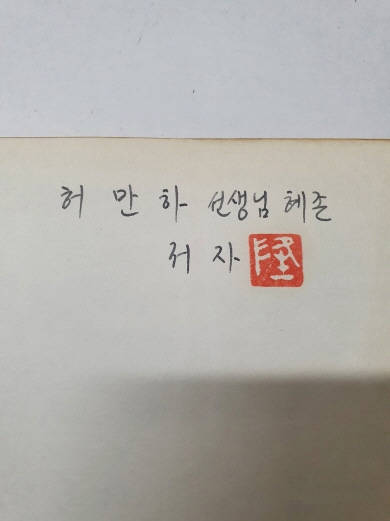 허 만 하 선생님 혜존
저 자